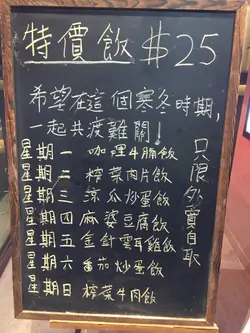 特價飲 $25
希望在這個寒冬時期，
一起共度難關！
星期一 咖喱牛腩飲
星期二 榨菜肉片飲
星期三 涼瓜炒蛋飲
星期四 麻婆豆腐飲
星期五 金針雲耳雞飲
星期六 番茄炒蛋飲
星期日 榨菜牛肉飲
只限外賣自取